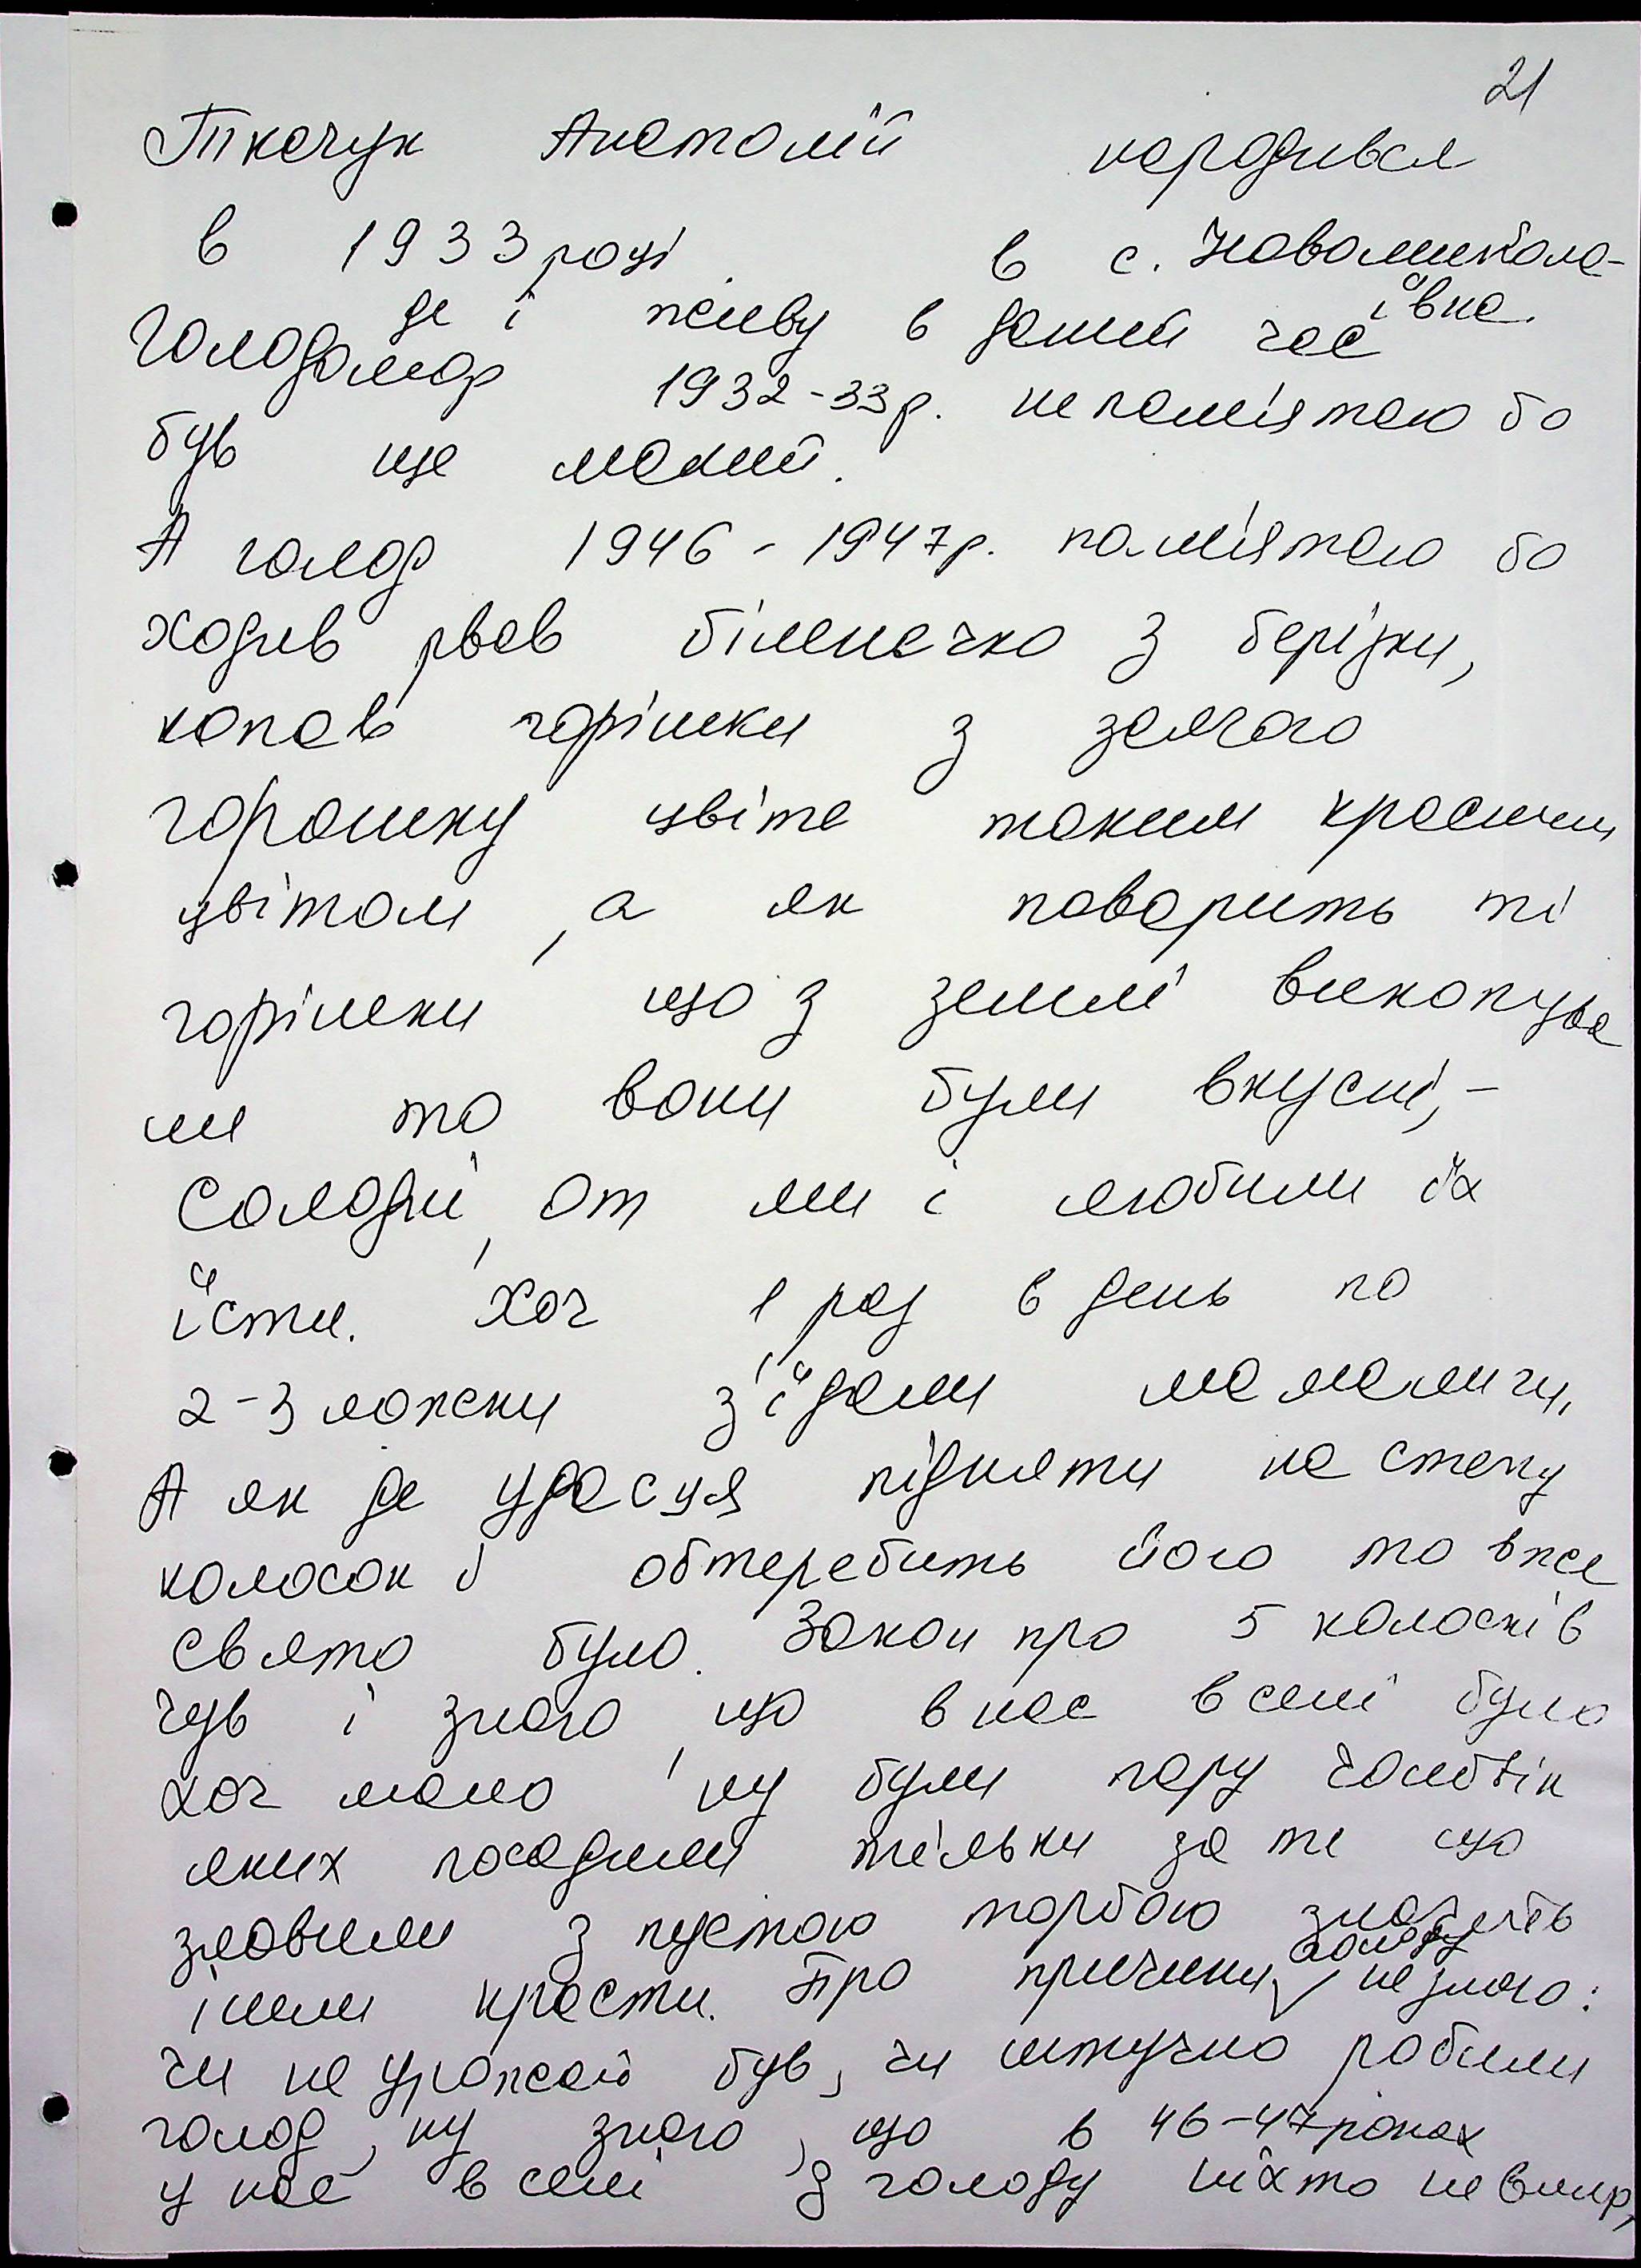 21
Ткачук Анатолій народився
в 1933 році в с. Новомикола-
ївка.
де і живу в даний час
Голодомор 1932-33р. не пам'ятаю бо
був ще малий.
А голод 1946 - 1947р. пам'ятаю бо
ходив рвав біленечко з берізки,
копав горішки з заячого
горошку цвіте таким красичим
цвітом, а як поварить ті
горішки що з землі викопува
ли то вони були вкусні, -
солодкі, от ми і любили їх
їсти. Хоч 1 раз в день по
2-3 ложки з'їдали мамалиги,
А як де удасця підняти на степу
колосок і обтеребить його то вже
свято було. Закон про 5 колосків
чув і знаю що в нас в селі було
хоч мало, ну були пару чоловік
яких посадили тільки за те що
зловили з пустою торбою значить
ішли красти. Про причини голоду не знаю:
чи не урожай був, чи штучно робили
голод, ну знаю, що в 46-47 роках
у нас в селі з голоду ніхто не вмир,